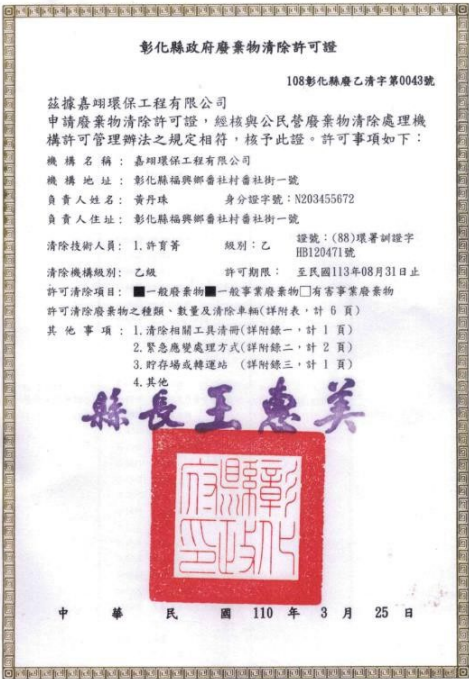 彰化縣政府廢棄物清除許可證
108彰化縣廢乙清字第0043號
茲據嘉翊環保工程有限公司
申請廢棄物清除許可證，經核與公民營廢棄物清除處理機
構許可管理辦法之規定相符，核予此證。許可事項如下：
機構名稱：嘉翊環保工程有限公司
機構地址：彰化縣福興鄉番社村番社街一號
負責人姓名：黃丹珠 身分證字號：N203455672
負責人住址：彰化縣福興鄉番社村番社街一號
清除技術人員：1.許育菁 級別：乙 證號：(88)環署訓證字
HB120471號
清除機構級別：乙級 許可期限：至民國113年08月31日止
許可清除項目：■一般廢棄物■一般事業廢棄物□有害事業廢棄物
許可清除廢棄物之種類、數量及清除車輛(詳附表，計 6 頁)
其他事項：1.清除相關工具清冊(詳附錄一，計 1 頁)
2.緊急應變處理方式(詳附錄二，計 2 頁)
3.貯存場或轉運站 (詳附錄三，計 1 頁)
4.其他
縣長王惠美
彰化縣政府印
中華民國 110 年 3 月 25 日